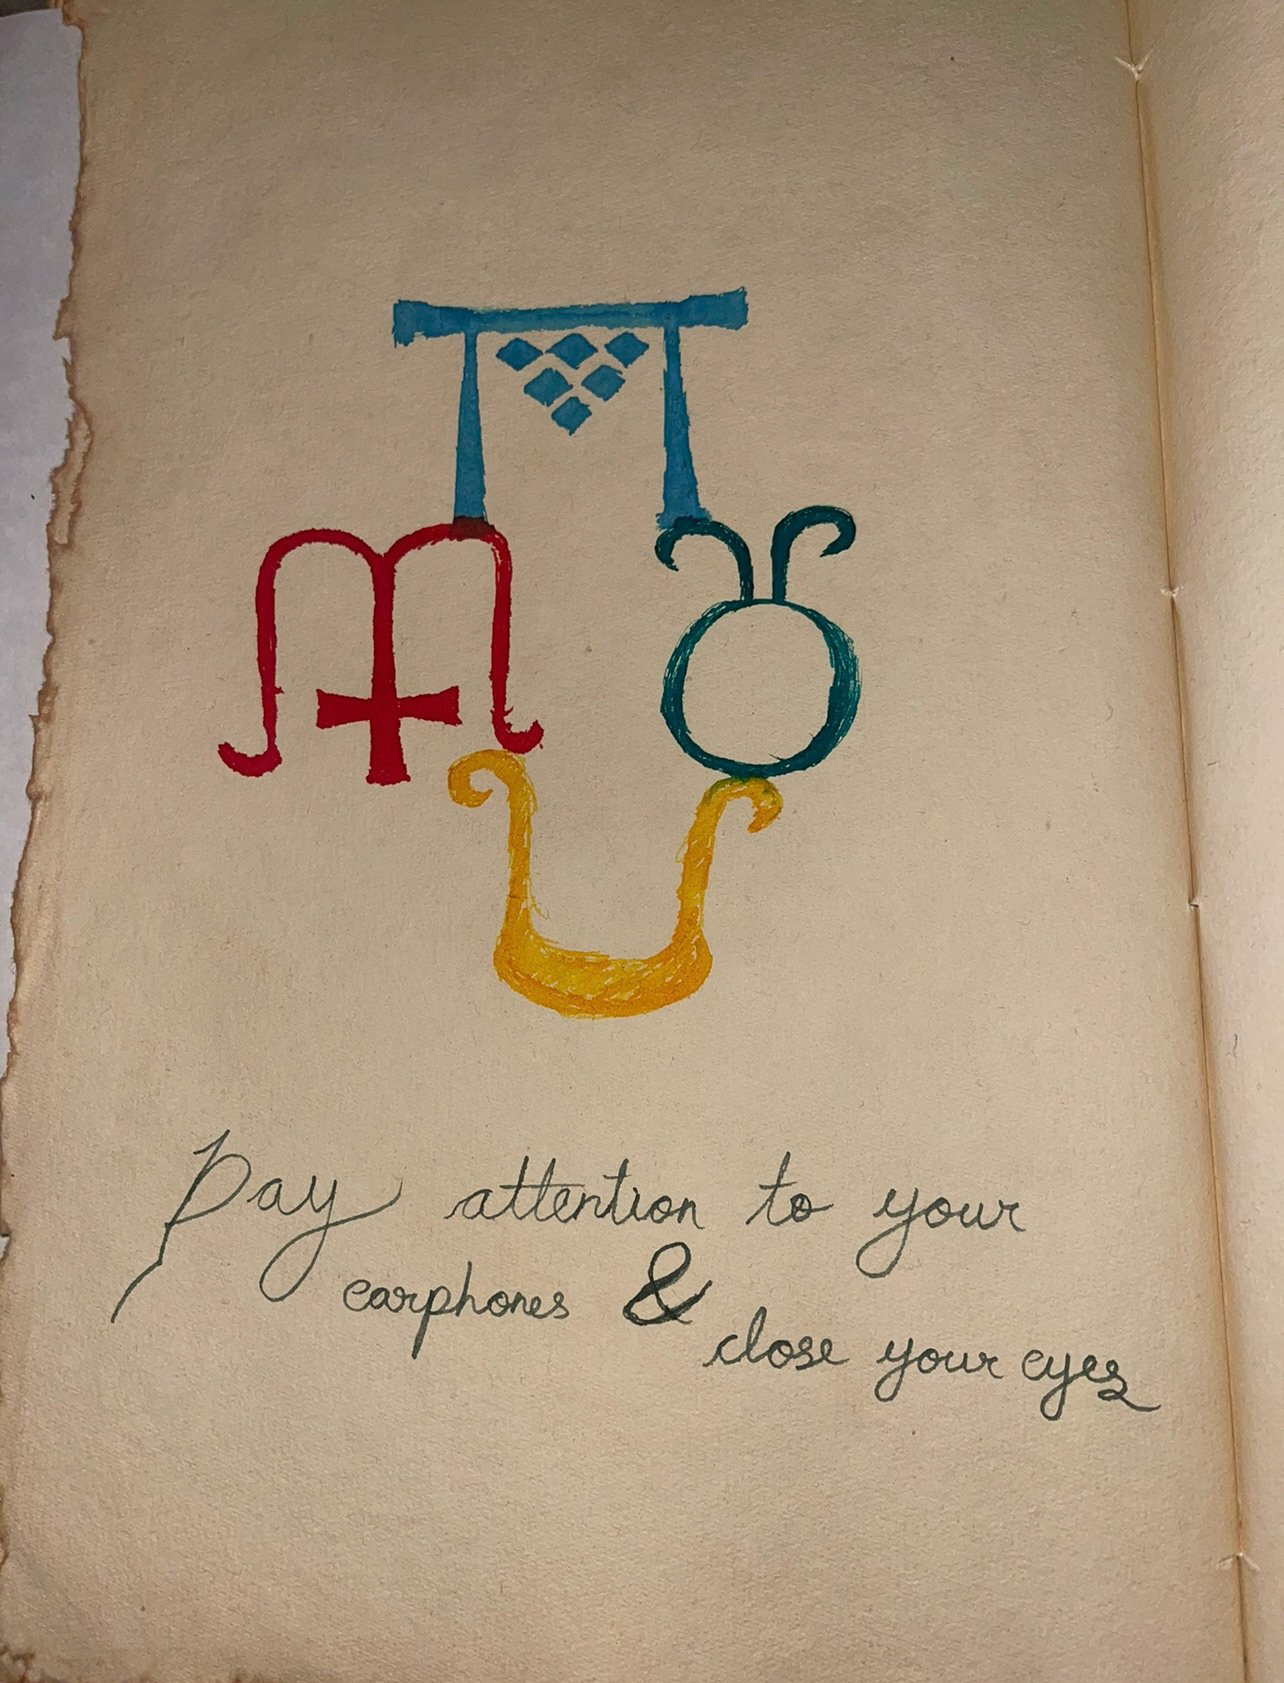 Pay attention to your
earphones &
close your eyes